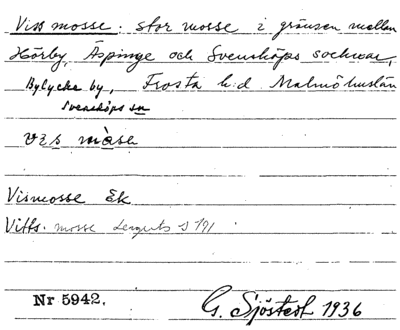 Viss mosse. stor mosse i gränsen mellan
Hörby, Äspinge och Svensköps socknar,
Bylycke by, Frosta h:d Malmöhuslän
Svensköps sn
måse
Vismosse Ek
Vitts. mosse s 191
Nr 5942. G. Sjöstedt 1936